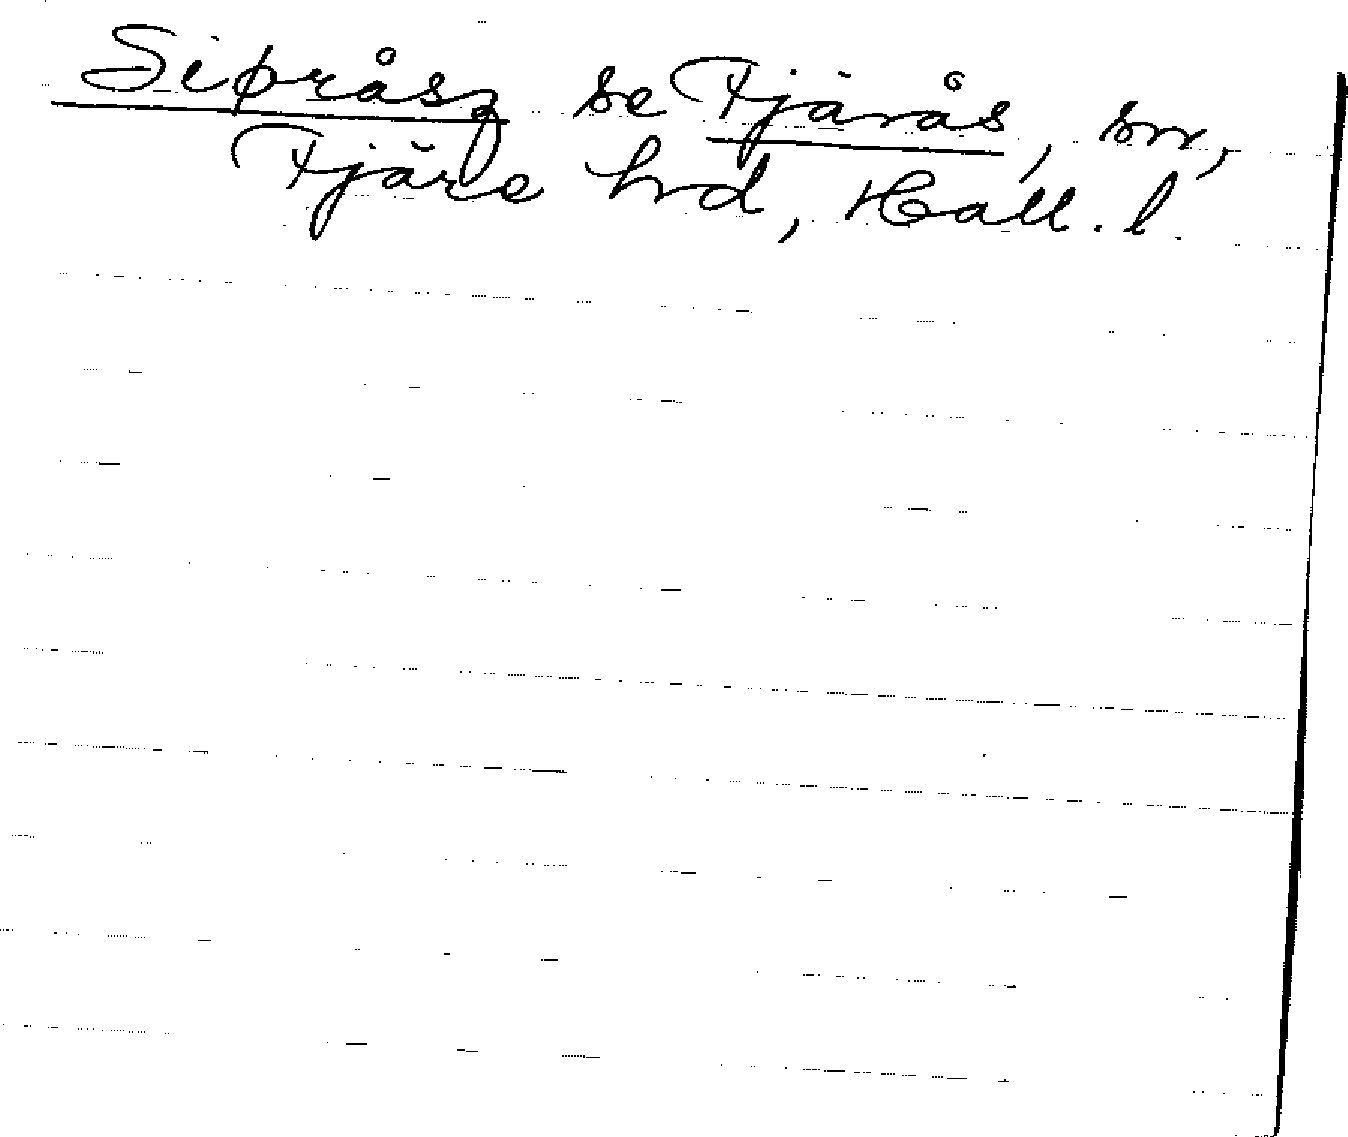 Sipråsz se Tjärås, sn,
Fjäre hd, Hall. l.